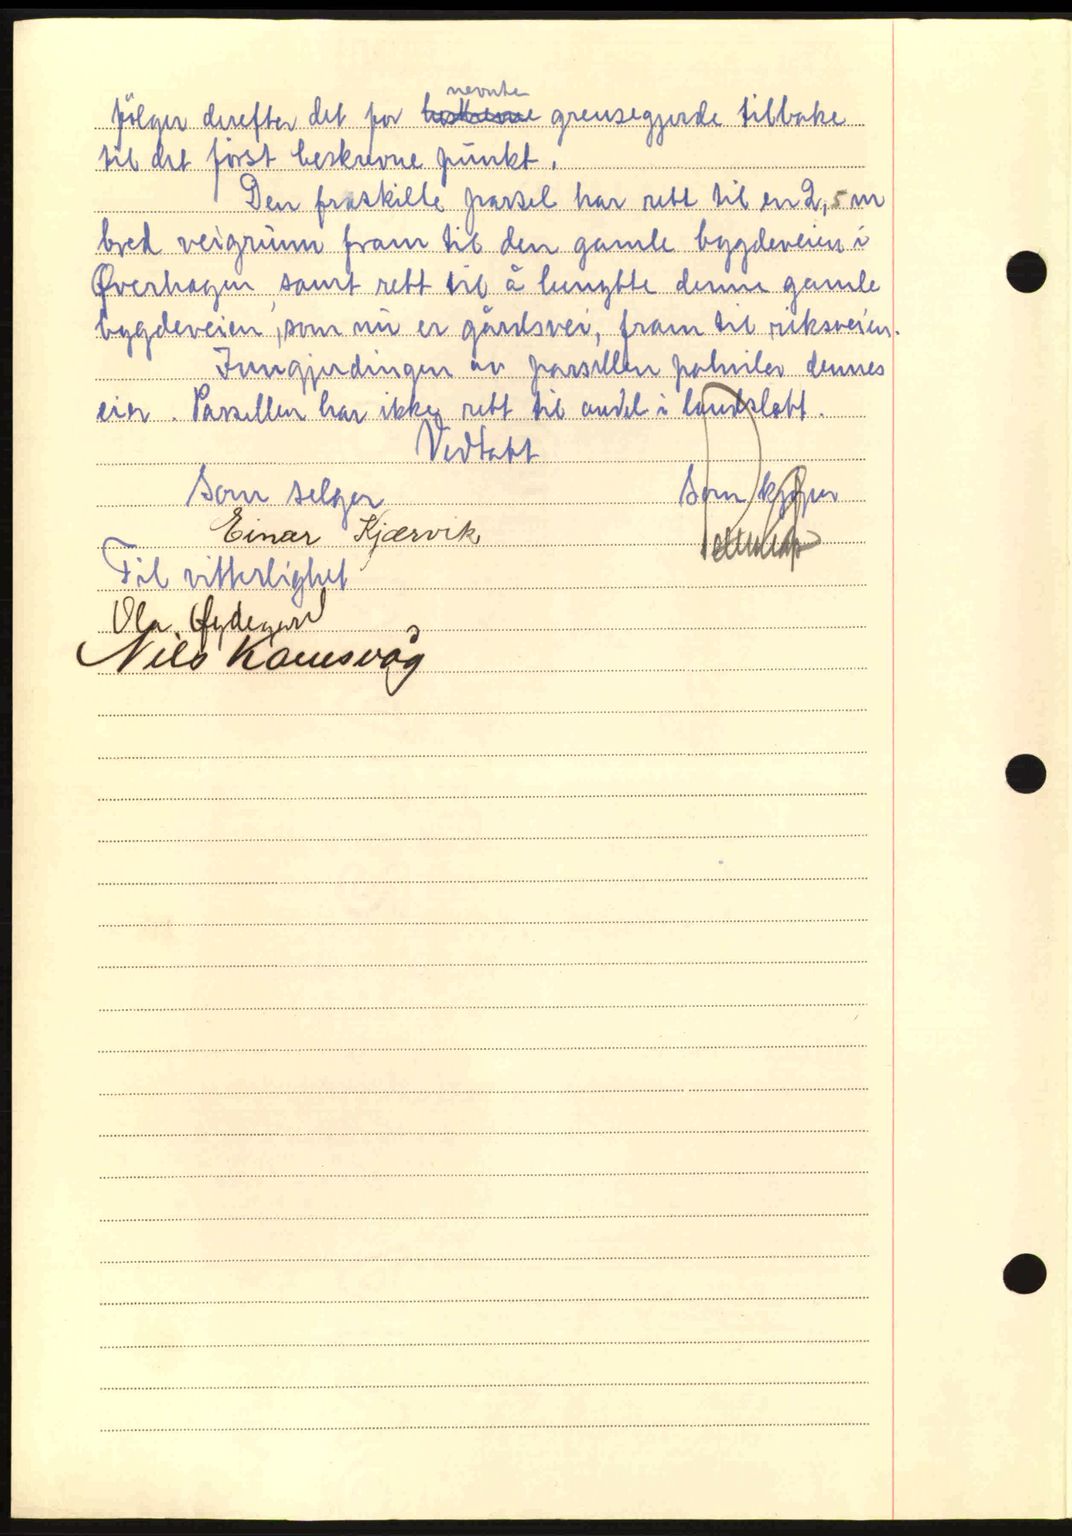 følger derefter det før nevnte beskrevne grensegjerde tilbake
til det først beskrevne punkt.
Den fraskilte parsel har rett til en 2,5 m
bred veigrunn fram til den gamle bygdeveien i
Øverhagen, samt rett til å benytte denne gamle
bygdeveien, som nu er gårdsvei, fram til riksveien.
Inngjerdingen av parsellen påhviler dennes
eier. Parsellen har ikke rett til andel i landslott.
Vedtatt
Som selger Som kjøper
Einar Kjærvik
Til vitterlighet
Ola Øydegard
Nils Kanesvåg